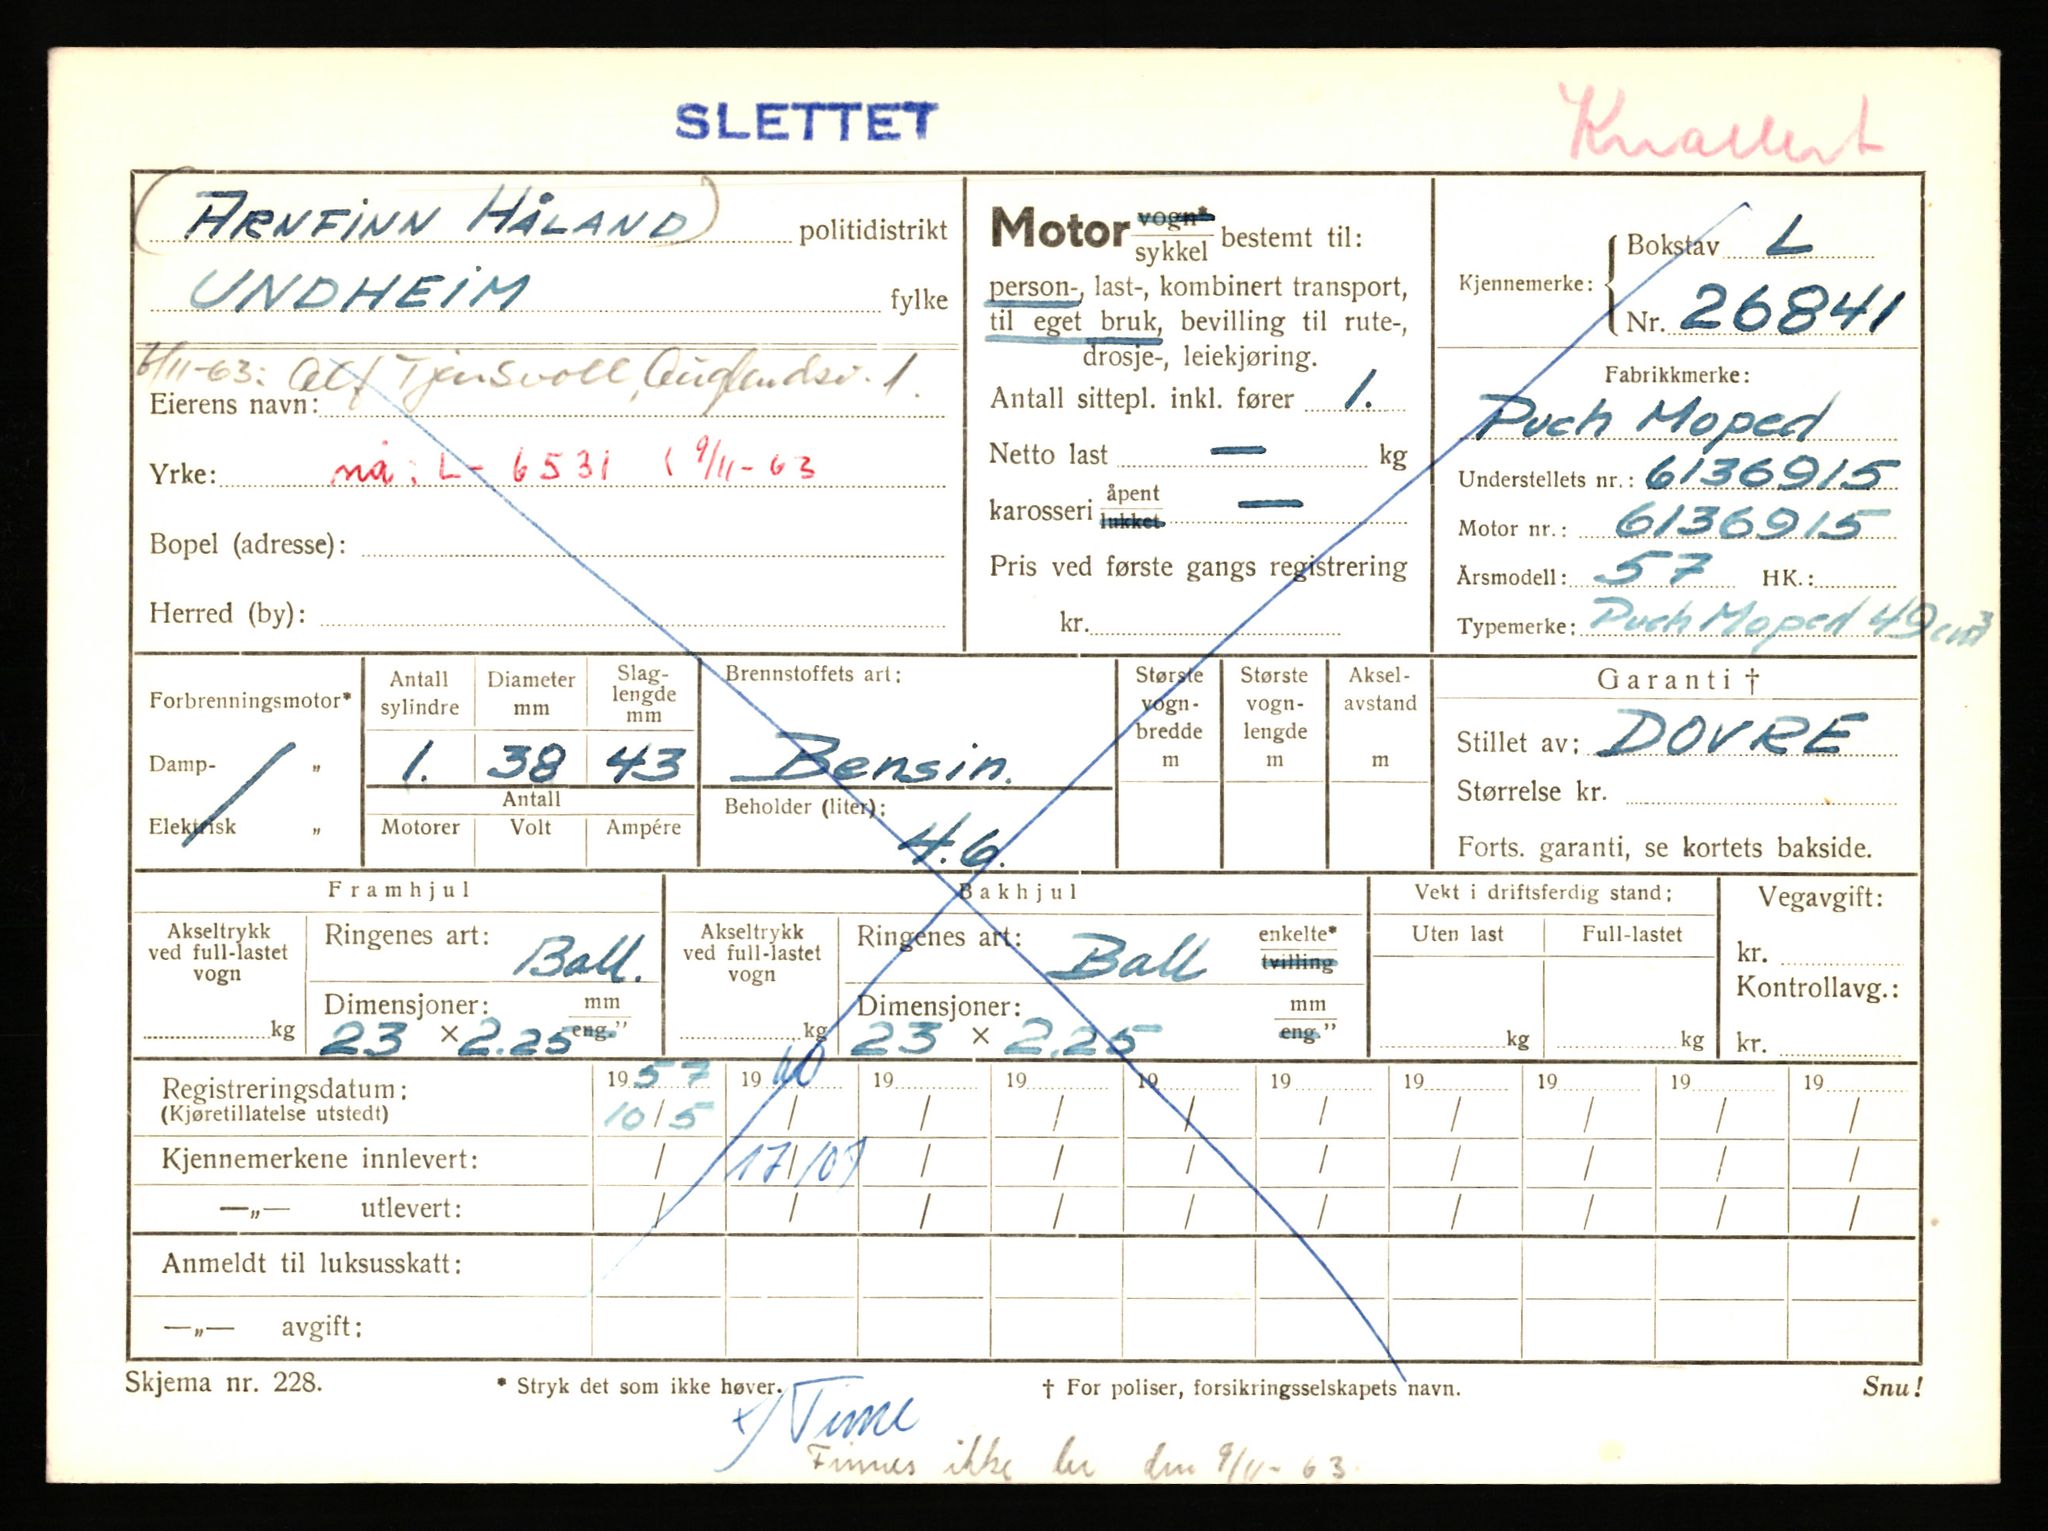 SLETTET
Knallert
(ARNFINN HÅLAND) politidistrikt
UNDHEIM fylke
/11-63: Alf Tjensvoll, Auglendsv. 1.
Eierens navn:
Yrke: nå: L- 6531 ( 9/11-63
Bopel (adresse):
Herred (by):
Motor vogn* sykkel bestemt til:
person-, last-, kombinert transport,
til eget bruk, bevilling til rute-,
drosje-, leiekjøring.
Antall sittepl. inkl. fører 1.
Netto last — kg
karosseri åpent lukket —
Pris ved første gangs registrering
kr.
Kjennemerke: { Bokstav L
Nr. 26841
Fabrikkmerke:
Puch Moped
Understellets nr.: 6136915
Motor nr.: 6136915
Årsmodell: 57 HK.:
Typemerke: Puch Moped 49cm³
Forbrenningsmotor*
Damp- „
Elektrisk „
Antall sylindre
Diameter mm
Slag-lengde mm
1. 38 43
Antall
Motorer Volt Ampére
Brennstoffets art:
Bensin.
Beholder (liter):
4.6.
Største vogn-bredde m
Største vogn-lengde m
Aksel-avstand m
Garanti †
Stillet av: DOVRE
Størrelse kr.
Forts. garanti, se kortets bakside.
Framhjul
Akseltrykk ved full-lastet vogn
kg
Ringenes art: Ball.
Dimensjoner: mm eng.”
23 × 2.25
Bakhjul
Akseltrykk ved full-lastet vogn
kg
Ringenes art: Ball enkelte* tvilling
Dimensjoner: mm eng.”
23 × 2.25
Vekt i driftsferdig stand:
Uten last Full-lastet
kg kg
Vegavgift:
kr.
Kontrollavg.:
kr.
Registreringsdatum: 1957 1960 19 19 19 19 19 19 19 19
(Kjøretillatelse utstedt) 10/5 / / / / / / / / /
Kjennemerkene innlevert: / 17/07 / / / / / / / /
—„— utlevert: / / / / / / / / / /
Anmeldt til luksusskatt:
—„— avgift:
Skjema nr. 228. * Stryk det som ikke høver. † For poliser, forsikringsselskapets navn. Snu!
x/ Time
Finnes ikke her den 9/11-63.